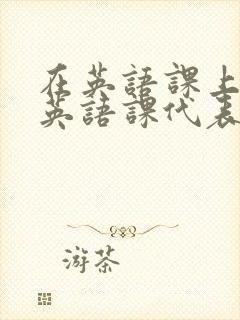 在英語課上
英語課代表
游茶